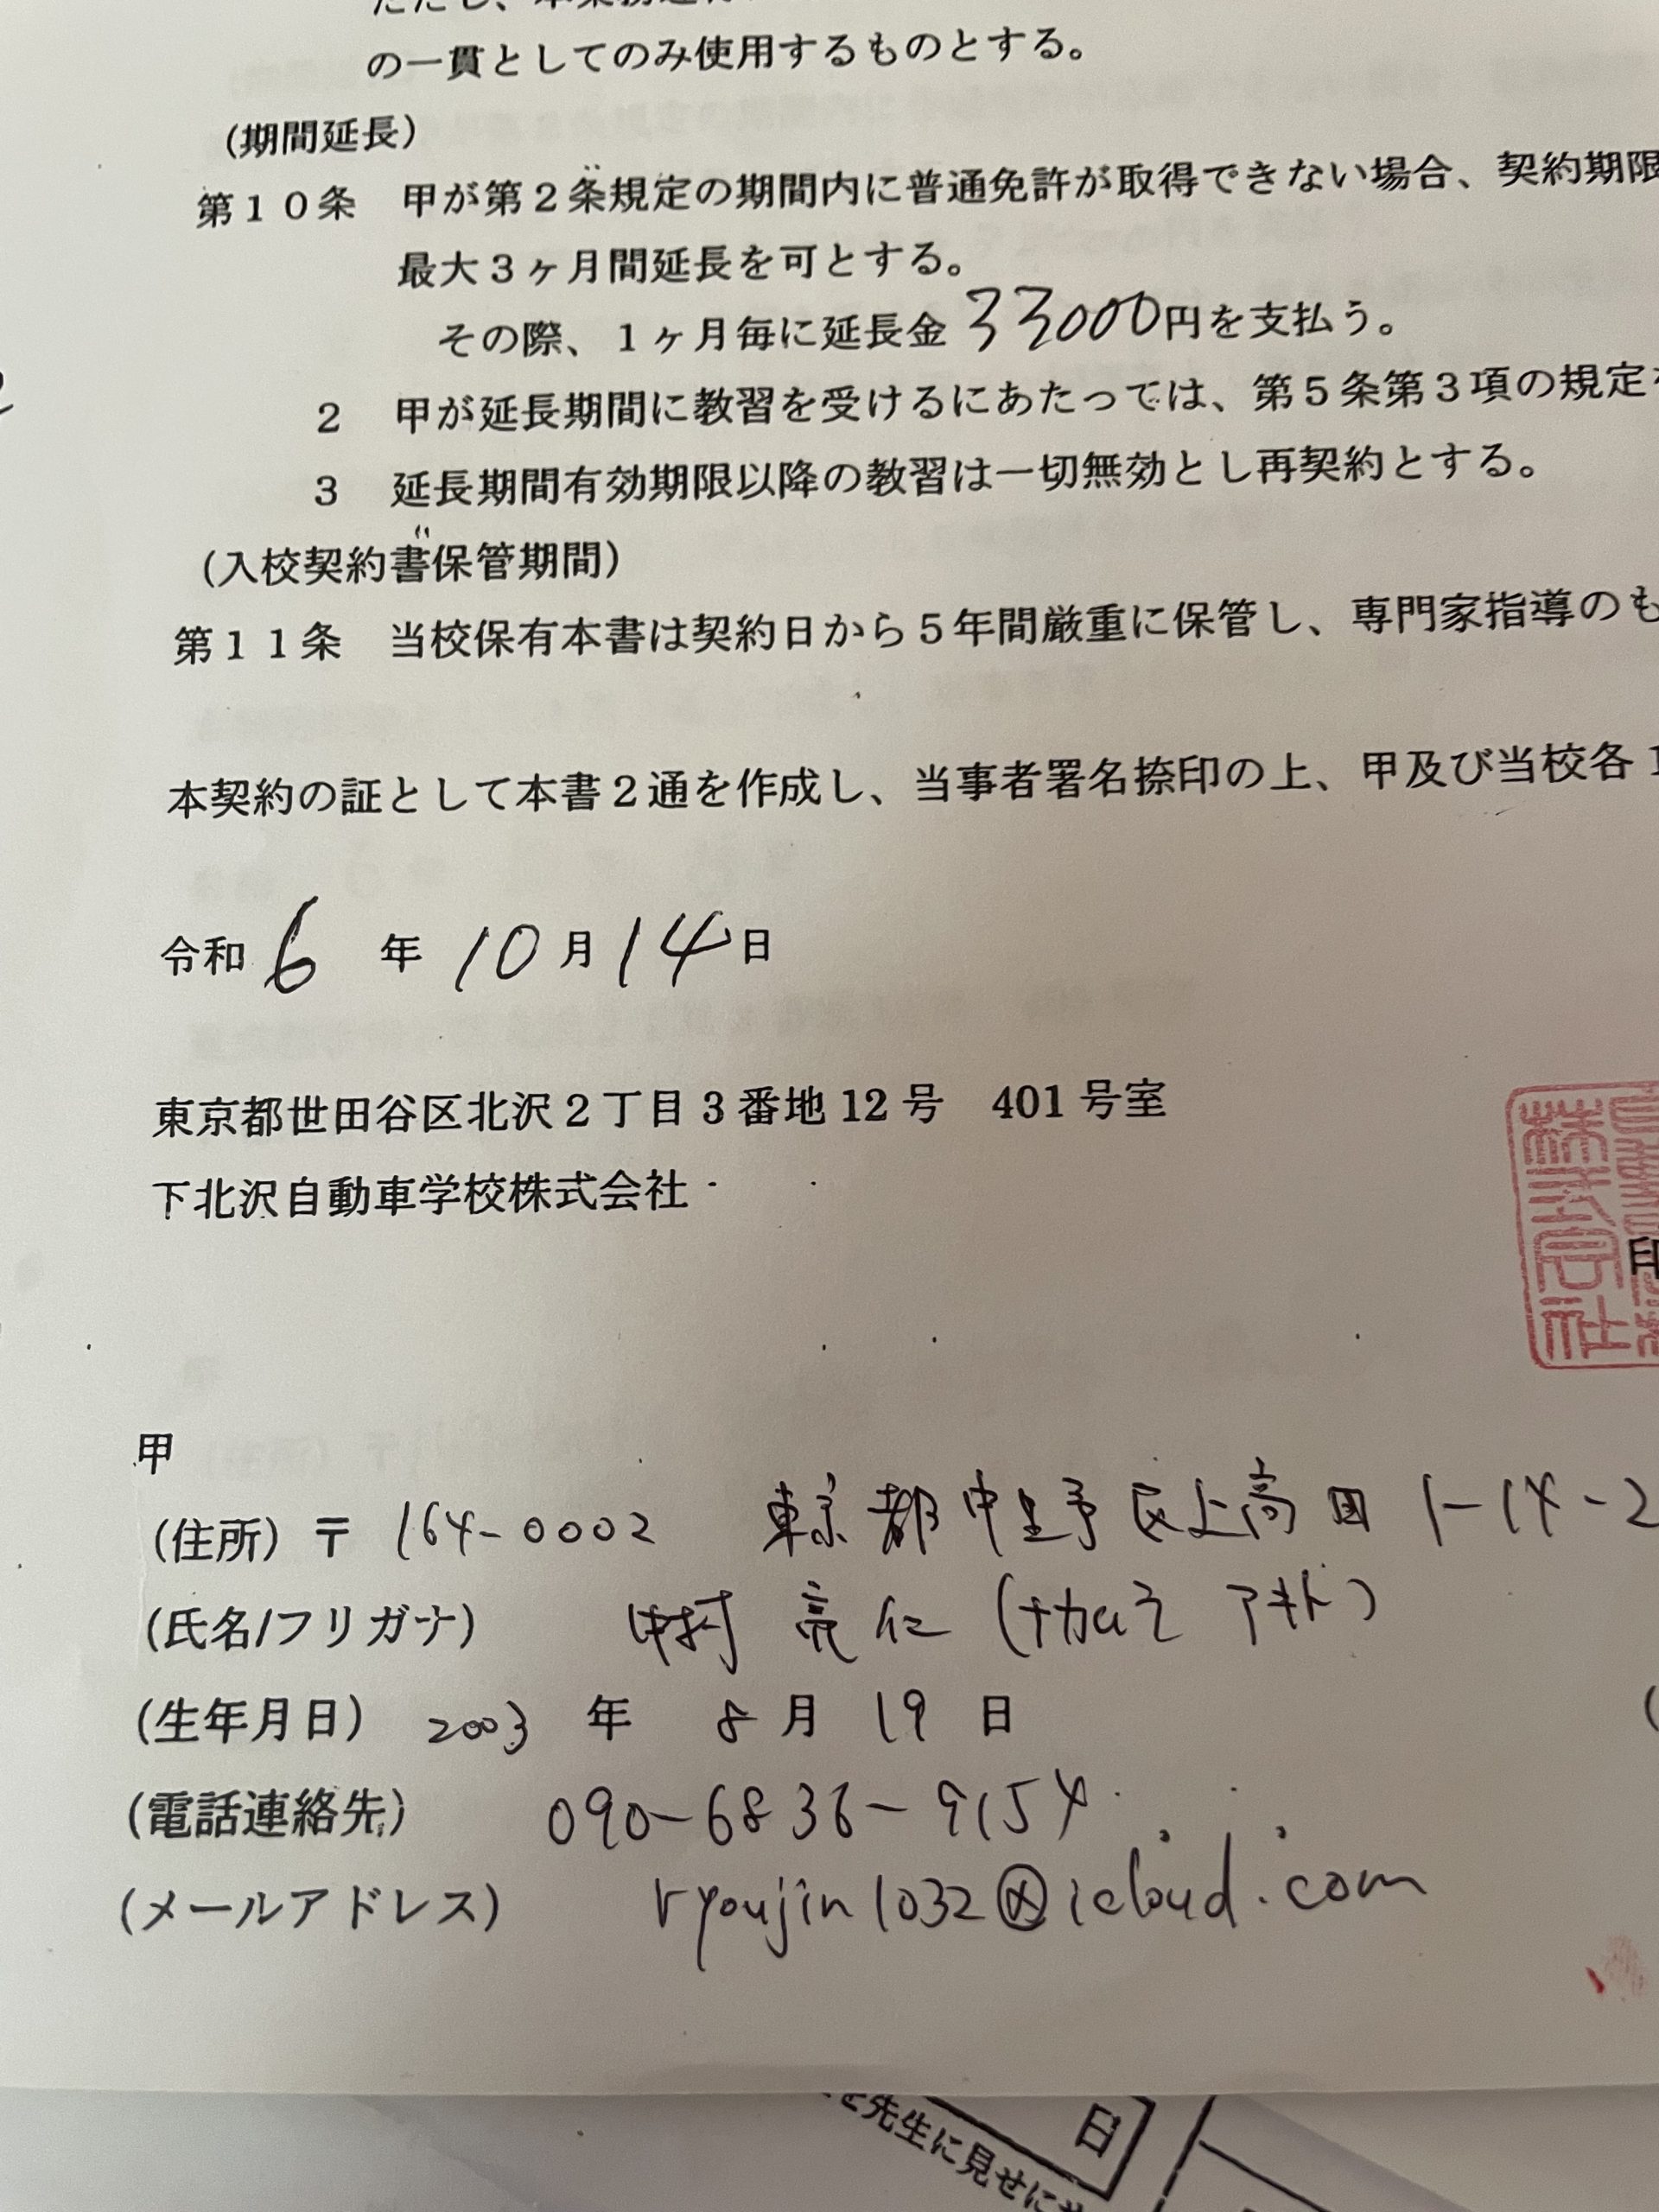 の一貫としてのみ使用するものとする。
(期間延長)
第10条 甲が第2条規定の期間内に普通免許が取得できない場合、契約期限
最大3ヶ月間延長を可とする。
その際、1ヶ月毎に延長金33000円を支払う。
2 甲が延長期間に教習を受けるにあたっては、第5条第3項の規定
3 延長期間有効期限以降の教習は一切無効とし再契約とする。
(入校契約書保管期間)
第11条 当校保有本書は契約日から5年間厳重に保管し、専門家指導のも
本契約の証として本書2通を作成し、当事者署名捺印の上、甲及び当校各1
令和 6 年 10 月 14 日
東京都世田谷区北沢2丁目3番地12号 401号室
下北沢自動車学校株式会社
株式会社
印
甲
(住所) 〒 164-0002 東京都中野区上高田 1-14-2
(氏名/フリガナ) 中村 亮仁 (ナカムラ アキト)
(生年月日) 2003 年 8 月 19 日
(電話連絡先) 090-6836-9154
(メールアドレス) ryoujin1032@icloud.com
日
先生に見せに